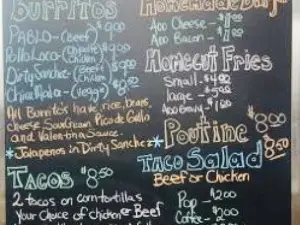 Burritos
PABLO - (Beef) $8.00
Pollo Loco - (Chipotle Chicken)
Dirty Sanchez - (Chicken)
China Maka - (Veggie) $8.00
All Burritos have, rice, beans,
cheese, Sour Cream, Pico de Gallo
and Valentina Sauce.
*Jalapenos in Dirty Sanchez*
Tacos $8.50
2 tacos on corn tortillas
Your Choice of chicken or Beef
Homemade
Add Cheese - $1.00
Add Bacon - $1.00
Homecut Fries
Small - $4.00
Large - $5.00
Add Gravy - $1.00
Poutine $8.00
Taco Salad
Beef or Chicken $8.50
Pop - $2.00
Coffee - $2.00